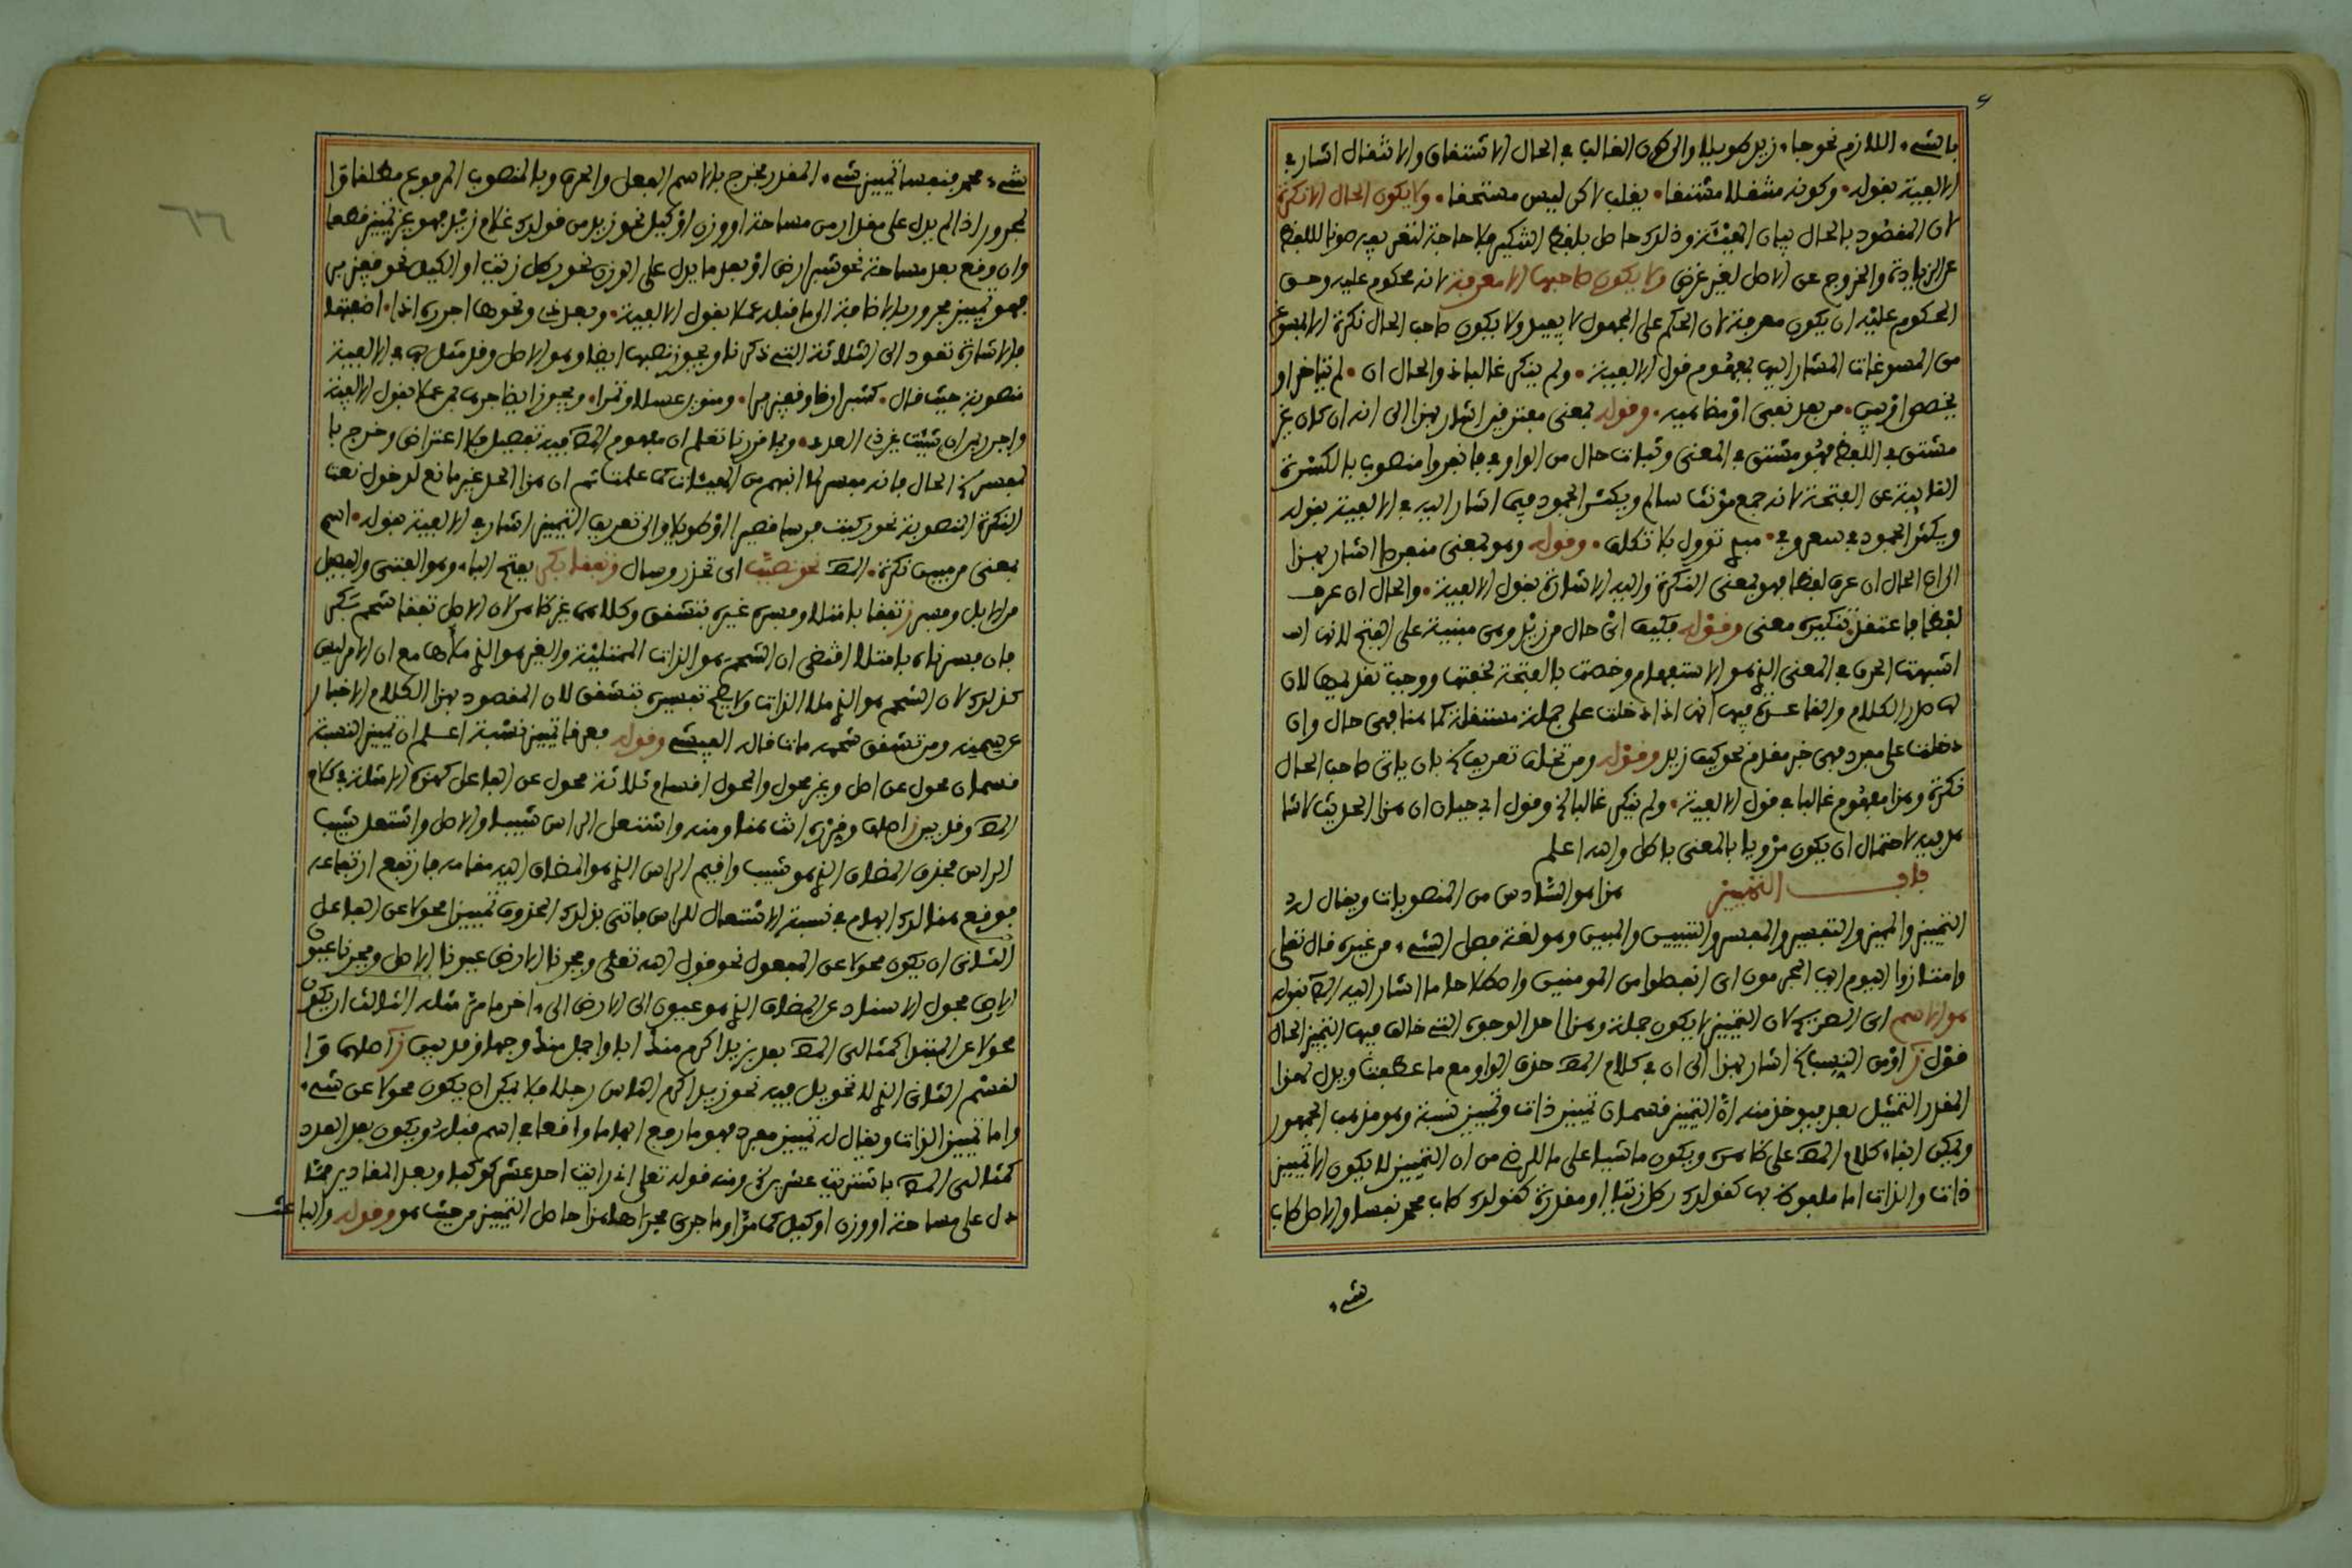 بالشيء اللازم نحو جاء زيد طويلا والى كون الغالب في الحال الاشتقاق والانتقال اشار في
الالفية بقوله وكونه منتقلا مشتقا يغلب لاكن ليس مستحقا ولا يكون الحال الا نكرة
لان المقصود بالحال بيان الهيئة وذلك حاصل بلفظ التنكير فلا حاجة لتعريفه صونا للفظ
عن الزيادة والخروج عن الاصل لغير غرض ولا يكون صاحبها الا معرفة لانه محكوم عليه وحق
المحكوم عليه ان يكون معرفة لان الحكم على المجهول لا يفيد ولا يكون صاحب الحال نكرة الا بمسوغ
من المسوغات المشار اليها بمفهوم قول الالفية ولم ينكر غالبا ذو الحال ان لم يتاخر او
يخصص او يبن من بعد نفي او مضاهيه وقوله بمعنى مغترفين اشار بهذا الى انه ان كان غير
مشتق في اللفظ فهو مشتق في المعنى وثبات حال من الواو في فانفروا منصوب بالكسرة
النائبة عن الفتحة لانه جمع مؤنث سالم ويكثر الجمود فيما اشار اليه في الالفية بقوله
ويكثر الجمود في سعر وفي مبدي تاول بلا تكلف وقوله وهو بمعنى منفردا اشار بهذا
الى ان الحال ان عرف لفظا فهو بمعنى النكرة واليه الاشارة بقول الالفية والحال ان عرف
لفظا فاعتقد تنكيره معنى وقوله فكيف اي حال من زيد وهي مبنية على الفتح لانها
اشبهت الحرف في المعنى الذي هو الاستفهام وخصت بالفتحة لخفتها ووجب تقديمها لان
لها صدر الكلام والقاعدة فيها انها اذا دخلت على جملة مستقلة كما هنا فهي حال وان
دخلت على مفرد فهي خبر مقدم نحو كيف زيد وقوله ومن تخلف تعريف الخ بان ياتي صاحب الحال
نكرة وهذا مفهوم غالبا في قول الالفية ولم ينكر غالبا الخ وقول ابي حيان ان هذا الحديث لا شاهد
فيه لاحتمال ان يكون مرويا بالمعنى باطل والله اعلم
باب التمييز هذا هو السادس من المنصوبات ويقال له
التمييز والمميز والتفسير والمفسر والتبيين والمبين وهو لغة فصل الشيء من غيره قال تعلى
وامتازوا اليوم ايها المجرمون اي انفصلوا من المومنين واصطلاحا ما اشار اليه المص بقوله
هو الاسم اي الصريح لان التمييز لا يكون جملة وهذا احد الوجوه التي خالف فيها التمييز الحال
قول ز او من النسب الخ اشار بهذا الى ان في كلام المص حذف الواو مع ما عطفت ويدل لهذا
المقدر التمثيل بعد فيوخذ منه ان التمييز قسمان تمييز ذات وتمييز نسبة وهو مذهب الجمهور
ويمكن ابقاء كلام المص على ظاهره ويكون ماشيا على ما للرضي من ان التمييز لا يكون الا تمييز
ذات والذات اما ملفوظ بها كقولك رطل زيتا او مقدرة كقولك طاب محمد نفسا والاصل طاب
شيء
شيء محمد فنفسا تمييز شيء المقدر فخرج بالاسم الفعل والحرف وبالمنصوب المرفوع مطلقا وا
لمجرور اذا لم يدل على مقدار من مساحة او وزن او كيل نحو زيد من قولك غلام زيد فهو غير تمييز قطعا
وان وقع بعد مساحة نحو شبر ارض او بعد ما يدل على الوزن نحو رطل زيت او الكيل نحو قفيز بر
فهو تمييز مجرور بالاضافة الى ما قبله عملا بقول الالفية وبعد ذي ونحوها اجرره اذا اضفتها
فالاشارة تعود الى الثلاثة التي ذكرنا ويجوز نصبها ايضا وهو الاصل وقد مثل بها في الالفية
منصوبة حيث قال كشبر ارضا وقفيز برا ومنوين عسلا وتمرا ويجوز ايضا جره بمن عملا بقول الالفية
واجرر بمن ان شئت غير ذي العدد وبما قررنا تعلم ان مفهوم المص فيه تفصيل فلا اعتراض وخرج با
لمفسر الخ الحال فانه مفسر لما انبهم من الهيئات كما علمت ثم ان هذا الحد غير مانع لدخول نعت
النكرة المنصوبة نحو ركبت فرسا قصيرا او طويلا والى تعريف التمييز اشار في الالفية بقوله اسم
بمعنى من مبين نكرة المص نحو تصبب اي تحدر وسال وتفقا بكر بفتح الباء وهو الفتى والفحل
من الابل وفسر ز تفقا بامتلا وفسره غيره بتشقق وكلاهما غير ظاهر لان الاصل تفقا شحم بكر
فان فسرناه بامتلا اقتضى ان الشحم هو الذات الممتلية والغير هو الذي ملأها مع ان الامر ليس
كذلك لان الشحم هو الذي ملا الذات ولا يصح تفسيره بتشقق لان المقصود بهذا الكلام الاخبار
عن سمنه ومن تشقق شحمه مات قاله الفيشي وقوله فعرقا تمييز نسبة اعلم ان تمييز النسبة
قسمان محول عن اصل وغير محول والمحول اقسام ثلاثة محول عن الفاعل كهذه الامثلة في كلام
المص وقد بين ز اصلها وغيره اثنا هنا ومنه واشتعل الراس شيبا والاصل واشتعل شيب
الراس فحذف المضاف الذي هو شيب واقيم الراس الذي هو المضاف اليه مقامه فارتفع ارتفاعه
فوقع هنالك ابهام في نسبة الاشتعال للراس فاتي بذلك المحذوف تمييزا محولا عن الفاعل
الثاني ان يكون محولا عن المفعول نحو قول الله تعلى وفجرنا الارض عيونا الاصل وفجرنا عيون
الارض فحول الاسناد عن المضاف الذي هو عيون الى الارض الى ءاخر ما مر مثله الثالث ان يكون
محولا عن المبتدا كمثالي المص بعد بزيد اكرم منك ابا واجمل منك وجها وقد بين ز اصلهما وا
لقسم الثاني الذي لا تحويل فيه نحو زيد اكرم الناس رجلا فلا يمكن ان يكون محولا عن شيء
واما تمييز الذات ويقال له تمييز مفرد فهو ما رفع ابهاما واقعا في اسم قبله ويكون بعد العدد
كمثالي المص باشتريت عشرين الخ ومنه قوله تعلى اني رايت احد عشر كوكبا وبعد المقادير مما
دل على مساحة او وزن او كيل كما مر او ما جرى مجراها هذا حاصل التمييز من حيث هو وقوله والباعث